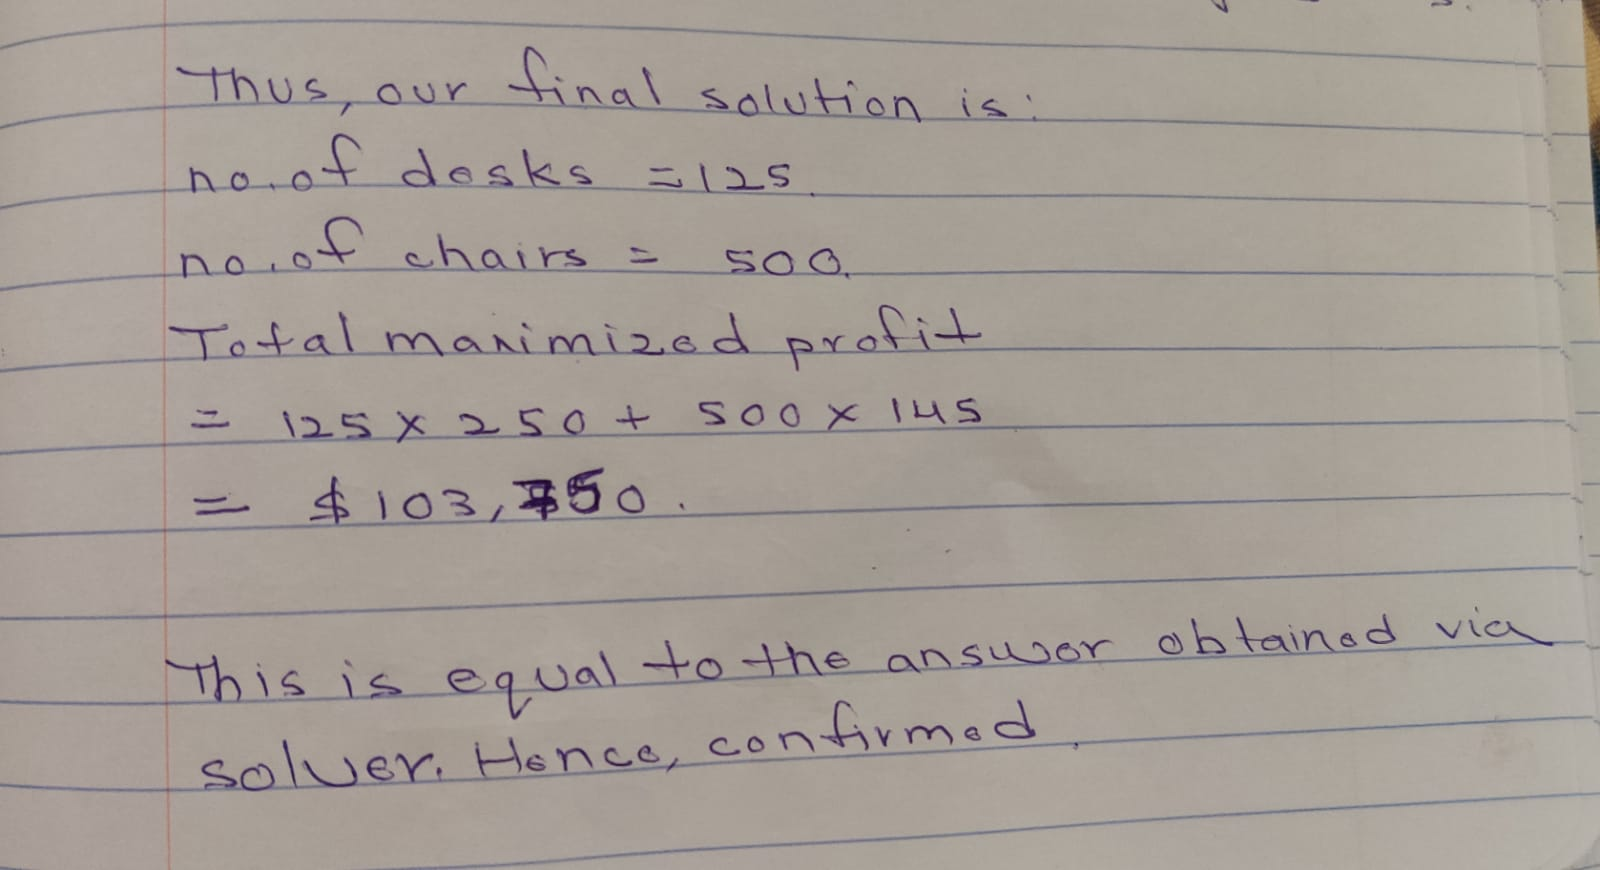 Thus, our final solution is:
no. of desks = 125.
no. of chairs = 500.
Total maximized profit
= 125 x 250 + 500 x 145
= $103,750.
This is equal to the answer obtained via
solver. Hence, confirmed.